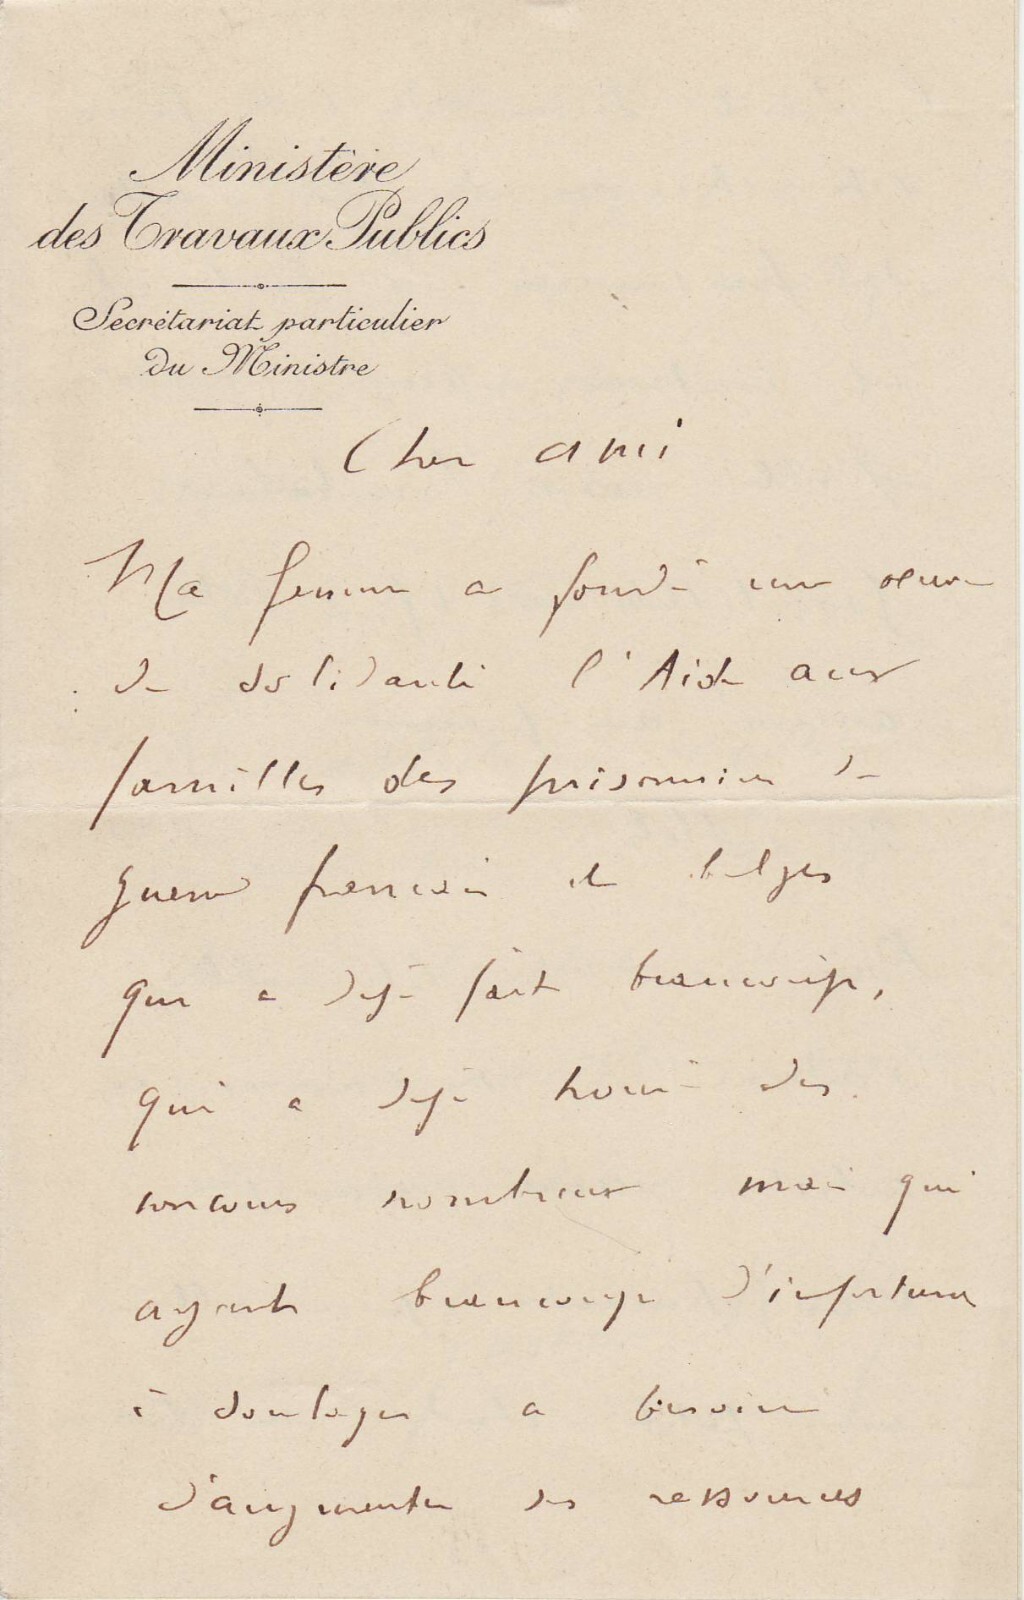 Ministère
des Travaux Publics
Secrétariat particulier
du Ministre
Cher ami
Ma femme a fondé une oeuvre
de solidarité l'Aide aux
familles des prisonniers de
guerre français et belges
qui a déjà fait beaucoup,
qui a déjà trouvé des
concours nombreux mais qui
ayant beaucoup d'infortunes
à soulager a besoin
d'augmenter ses ressources